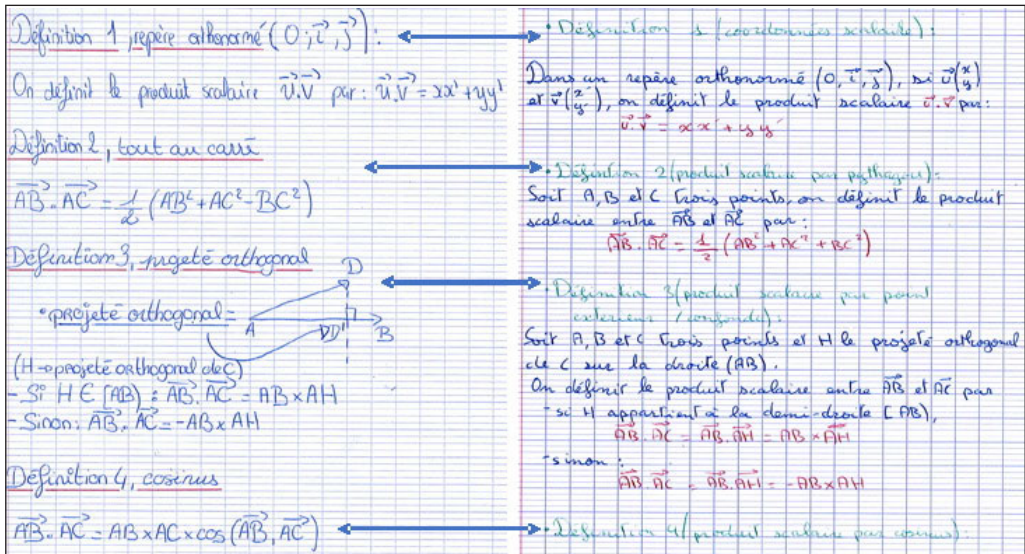 Définition 1, repère orthonormé (O; i⃗, j⃗):
On définit le produit scalaire u⃗.v⃗ par: u⃗.v⃗ = xx' + yy'
Définition 2, tout au carré
AB⃗. AC⃗ = 1/2 (AB² + AC² - BC²)
Définition 3, projeté orthogonal
• projeté orthogonal =
D
A
D'
B
(H → projeté orthogonal de C)
- Si H ∈ [AB) : AB⃗. AC⃗ = AB × AH
- Sinon: AB⃗. AC⃗ = -AB × AH
Définition 4, cosinus
AB⃗. AC⃗ = AB × AC × cos (AB⃗, AC⃗)
• Définition 1 (coordonnées scalaire):
Dans un repère orthonormé (O, i⃗, j⃗), si u⃗(x y)
et v⃗(x' y'), on définit le produit scalaire u⃗.v⃗ par:
u⃗.v⃗ = xx' + yy'
• Définition 2 (produit scalaire par pythagore):
Soit A, B et C trois points, on définit le produit
scalaire entre AB⃗ et AC⃗ par:
AB⃗. AC⃗ = 1/2 (AB² + AC² + BC²)
• Définition 3 (produit scalaire par point
exterieur / confondu):
Soit A, B et C trois points et H le projeté orthogonal
de C sur la droite (AB).
On définir le produit scalaire entre AB⃗ et AC⃗ par
- si H appartient à la demi-droite [AB),
AB⃗. AC⃗ = AB⃗. AH⃗ = AB × AH⃗
- sinon :
AB⃗. AC⃗ = AB⃗. AH⃗ = -AB × AH
• Définition 4 (produit scalaire par cosinus):